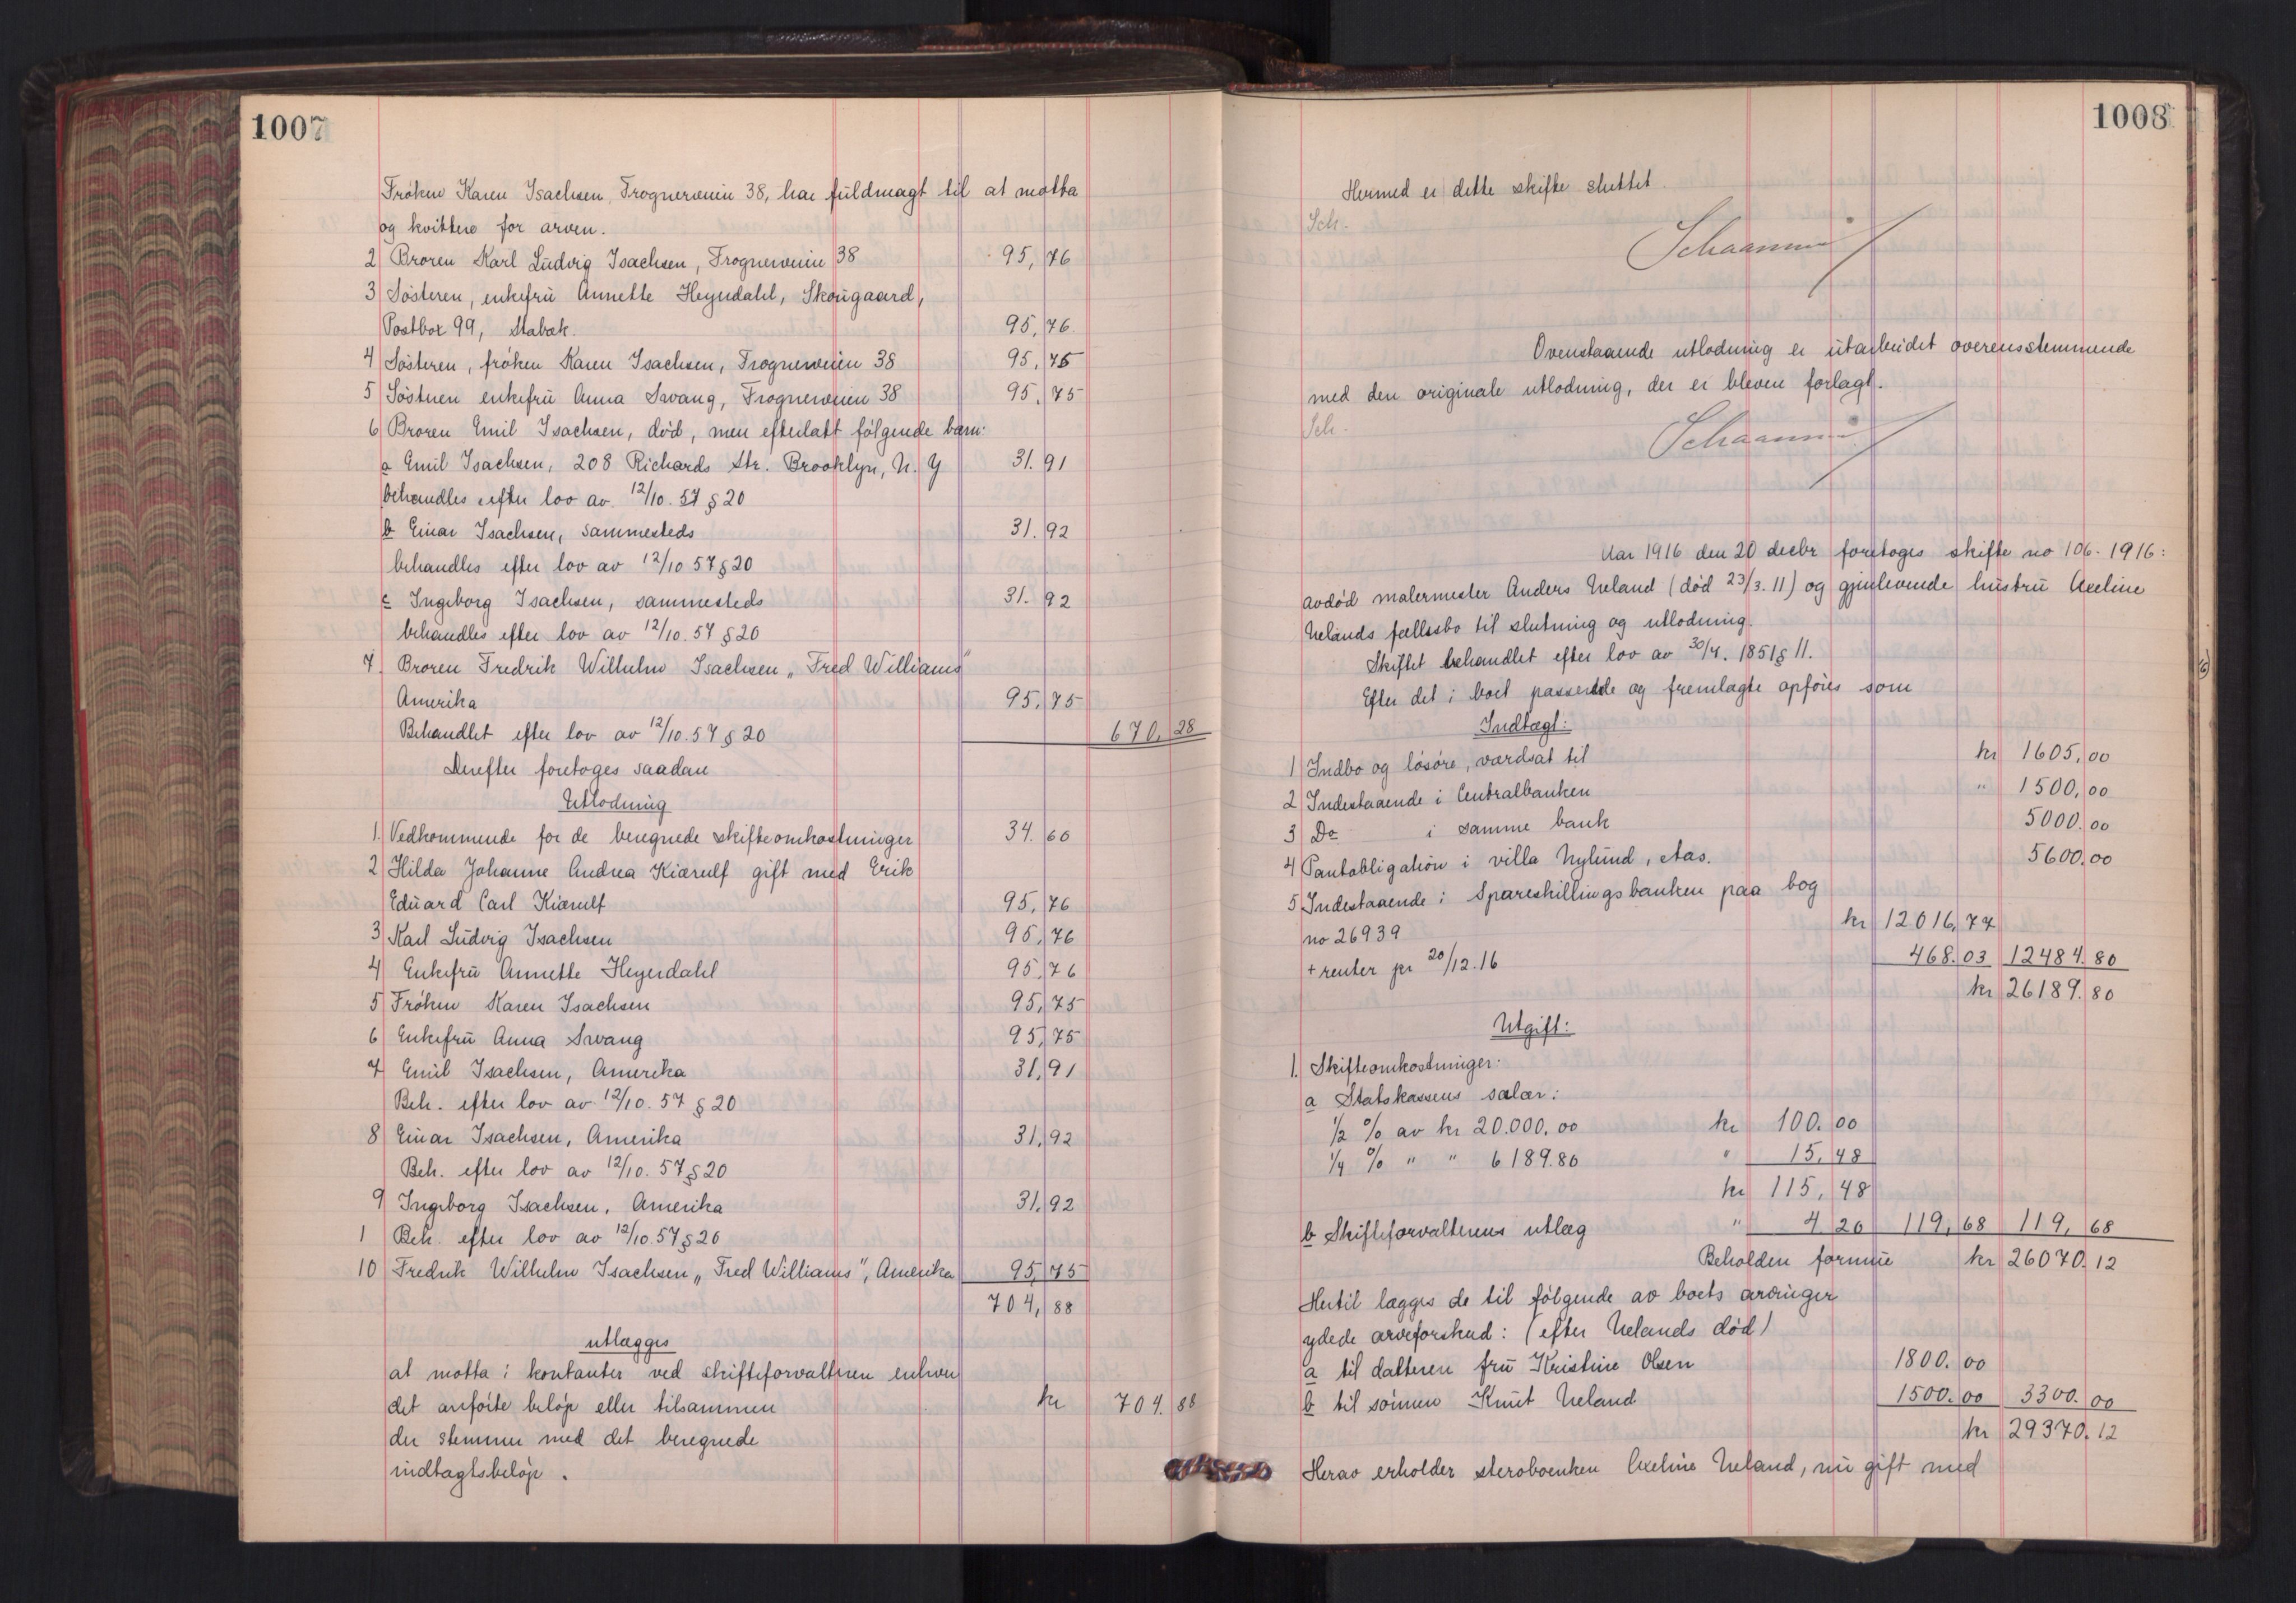 1007
Frøken Karen Isachsen, Frogneveien 38, har fuldmagt til at motta
og kvittere for arven.
2 Broren Karl Ludvig Isachsen, Frogneveien 38 95,76
3 Søsteren, enkefru Annette Heyerdahl, Skougaard,
Postbox 99, Stabæk. 95,76
4 Søsteren, frøken Karen Isachsen, Frogneveien 38 95,75
5 Søsteren enkefru Anna Svang, Frogneveien 38 95,75
6 Broren Emil Isachsen, død, men efterlatt følgende barn:
a Emil Isachsen, 208 Richards Str. Brooklyn, N. Y 31.91
behandles efter lov av 12/10. 57 § 20
b Einar Isachsen, sammesteds 31.92
behandles efter lov av 12/10 57 § 20
c Ingeborg Isachsen, sammesteds 31.92
behandles efter lov av 12/10. 57 § 20
7. Broren Fredrik Wilhelm Isachsen „Fred Williams"
Amerika 95,75
Behandlet efter lov av 12/10. 57 § 20 670,28
Derefter foretoges saadan
Utlodning
1. Vedkommende for de beregnede skifteomkostninger 34.60
2 Hilda Johanne Andrea Kiærulf gift med Erik
Eduard Carl Kiærulf 95,76
3 Karl Ludvig Isachsen 95,76
4 Enkefru Annette Heyerdahl 95,76
5 Frøken Karen Isachsen 95,75
6 Enkefru Anna Svang 95,75
7 Emil Isachsen, Amerika 31,91
Beh. efter lov av 12/10. 57 § 20
8 Einar Isachsen, Amerika 31,92
Beh. efter lov av 12/10. 57 § 20
9 Ingeborg Isachsen, Amerika 31,92
1 Beh. efter lov av 12/10. 57 § 20
10 Fredrik Wilhelm Isachsen „Fred Williams", Amerika 95,75
704,88
utlægges
at motta i kontanter ved skifteforvalteren enhver
det anførte beløp eller tilsammen kr 704.88
der stemmer med det beregnede
indtagtsbeløp.
1008
Hermed er dette skifte sluttet.
Sch.
Ovenstaaende utlodning er utarbeidet overensstemmende
med den originale utlodning, der er bleven forlagt.
Sch.
Aar 1916 den 20 decbr foretoges skifte no 106-1916:
avdød malermester Anders Ueland (død 23/3. 11) og gjenlevende hustru Axeline
Uelands fællesbo til slutning og utlodning.
Skiftet behandlet efter lov av 30/7. 1851 § 11.
Efter det i boet passerede og fremlagte opføres som
Indtægt:
1 Indbo og løsøre, værdsat til kr 1605,00
2 Indestaaende i Centralbanken " 1500,00
3 Do i samme bank 5000.00
4 Pantobligation i villa Nylund, Aas. 5600.00
5 Indestaaende i Spareskillingsbanken paa bog
no 26939 kr 12016,77
+ renter pr 20/12. 16 468.03 12484.80
kr 26189.80
Utgift:
1. Skifteomkostninger:
a Statskassens salær:
1/2 % av kr 20.000.00 kr 100.00
1/4 % " " 6189.80 " 15,48
kr 115,48
b Skifteforvalterens utlæg " 4 20 119,68 119,68
Beholden formue kr 26070.12
Hertil lægges de til følgende av boets arvinger
ydede arveforskud: (efter Uelands død)
a til datteren fru Kristine Olsen 1800.00
b til sønnen Knut Ueland 1500.00 3300.00
kr 29370.12
Herav erholder stervboenken Axeline Ueland, nu gift med